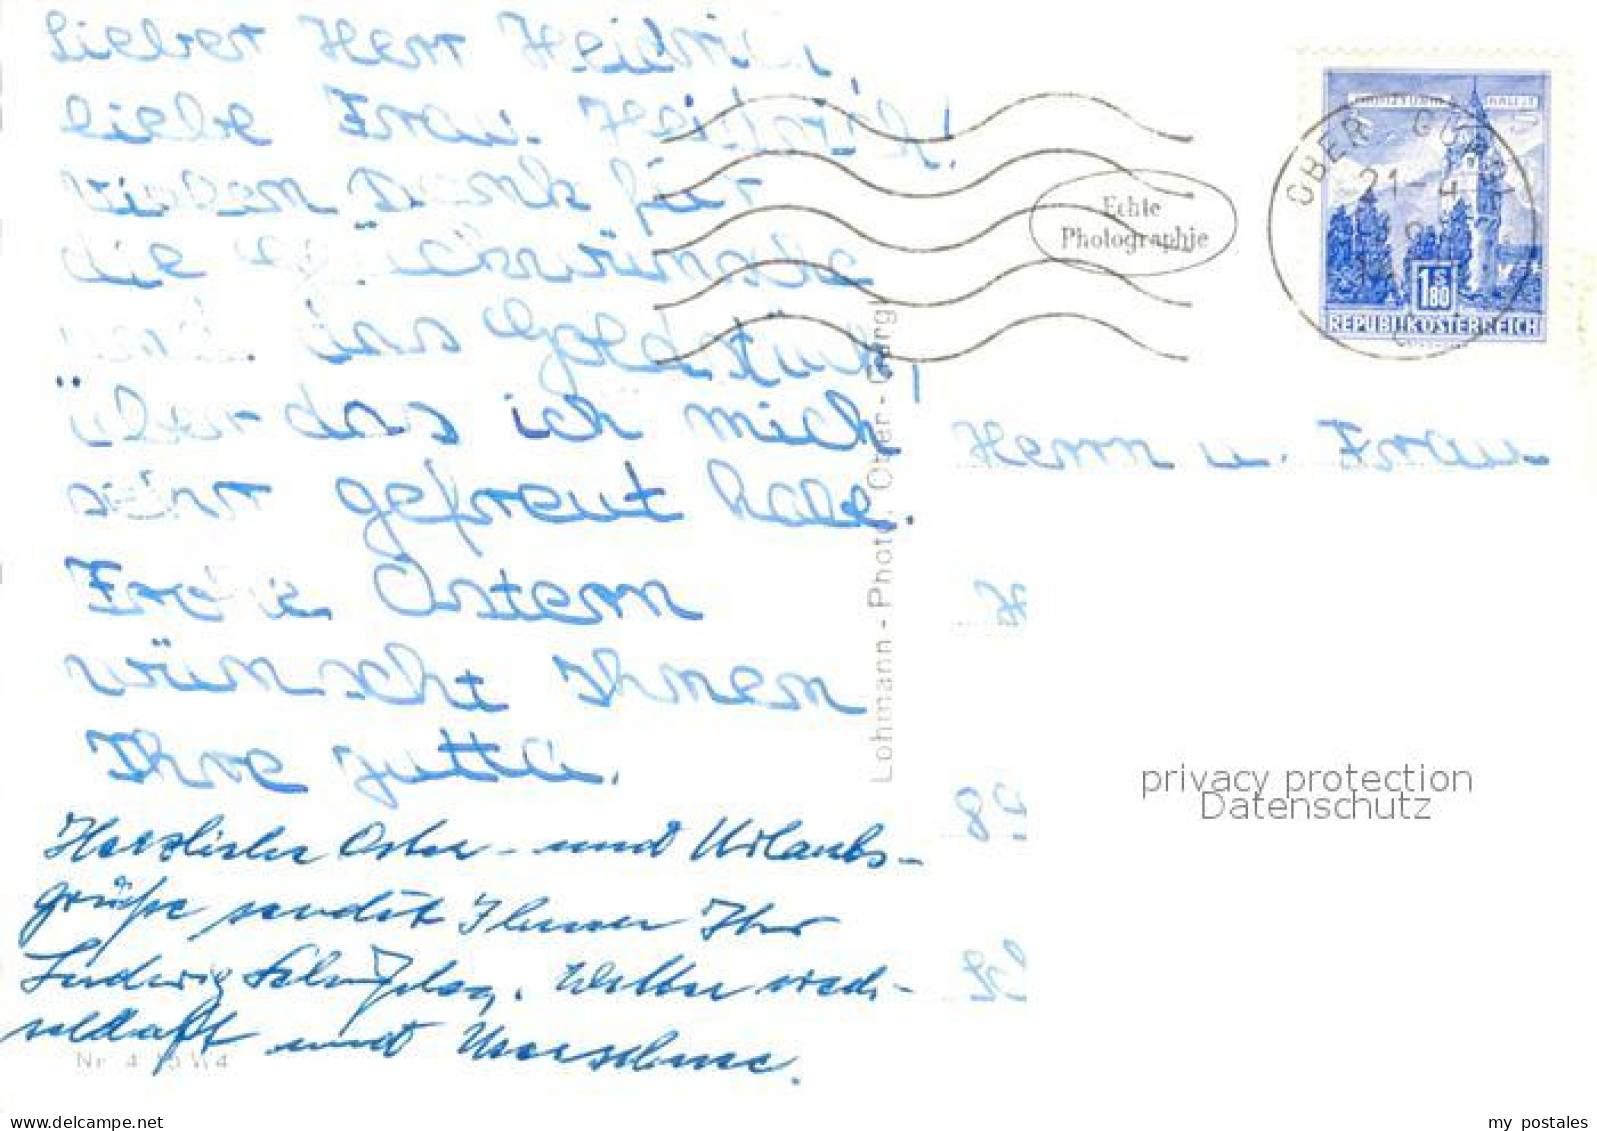 Lieber Herr Heidrich,
liebe Frau Heidrich!
Vielen Dank für
die Glückwünsche
und das Goldstück,
über das ich mich
sehr gefreut habe.
Frohe Ostern
wünscht Ihnen
Ihre Jutta.
Herzliche Oster- und Urlaubs-
grüße sendet Ihnen Ihr
Ludwig Wetter wech-
selhaft und
Nr. 4
Lohmann - Photo, Ober-Gurgl
Echte
Photographie
OBER GURGL
21-4
1 S 80
REPUBLIK ÖSTERREICH
Herrn u. Frau
privacy protection
Datenschutz
www.delcampe.net
my_postales